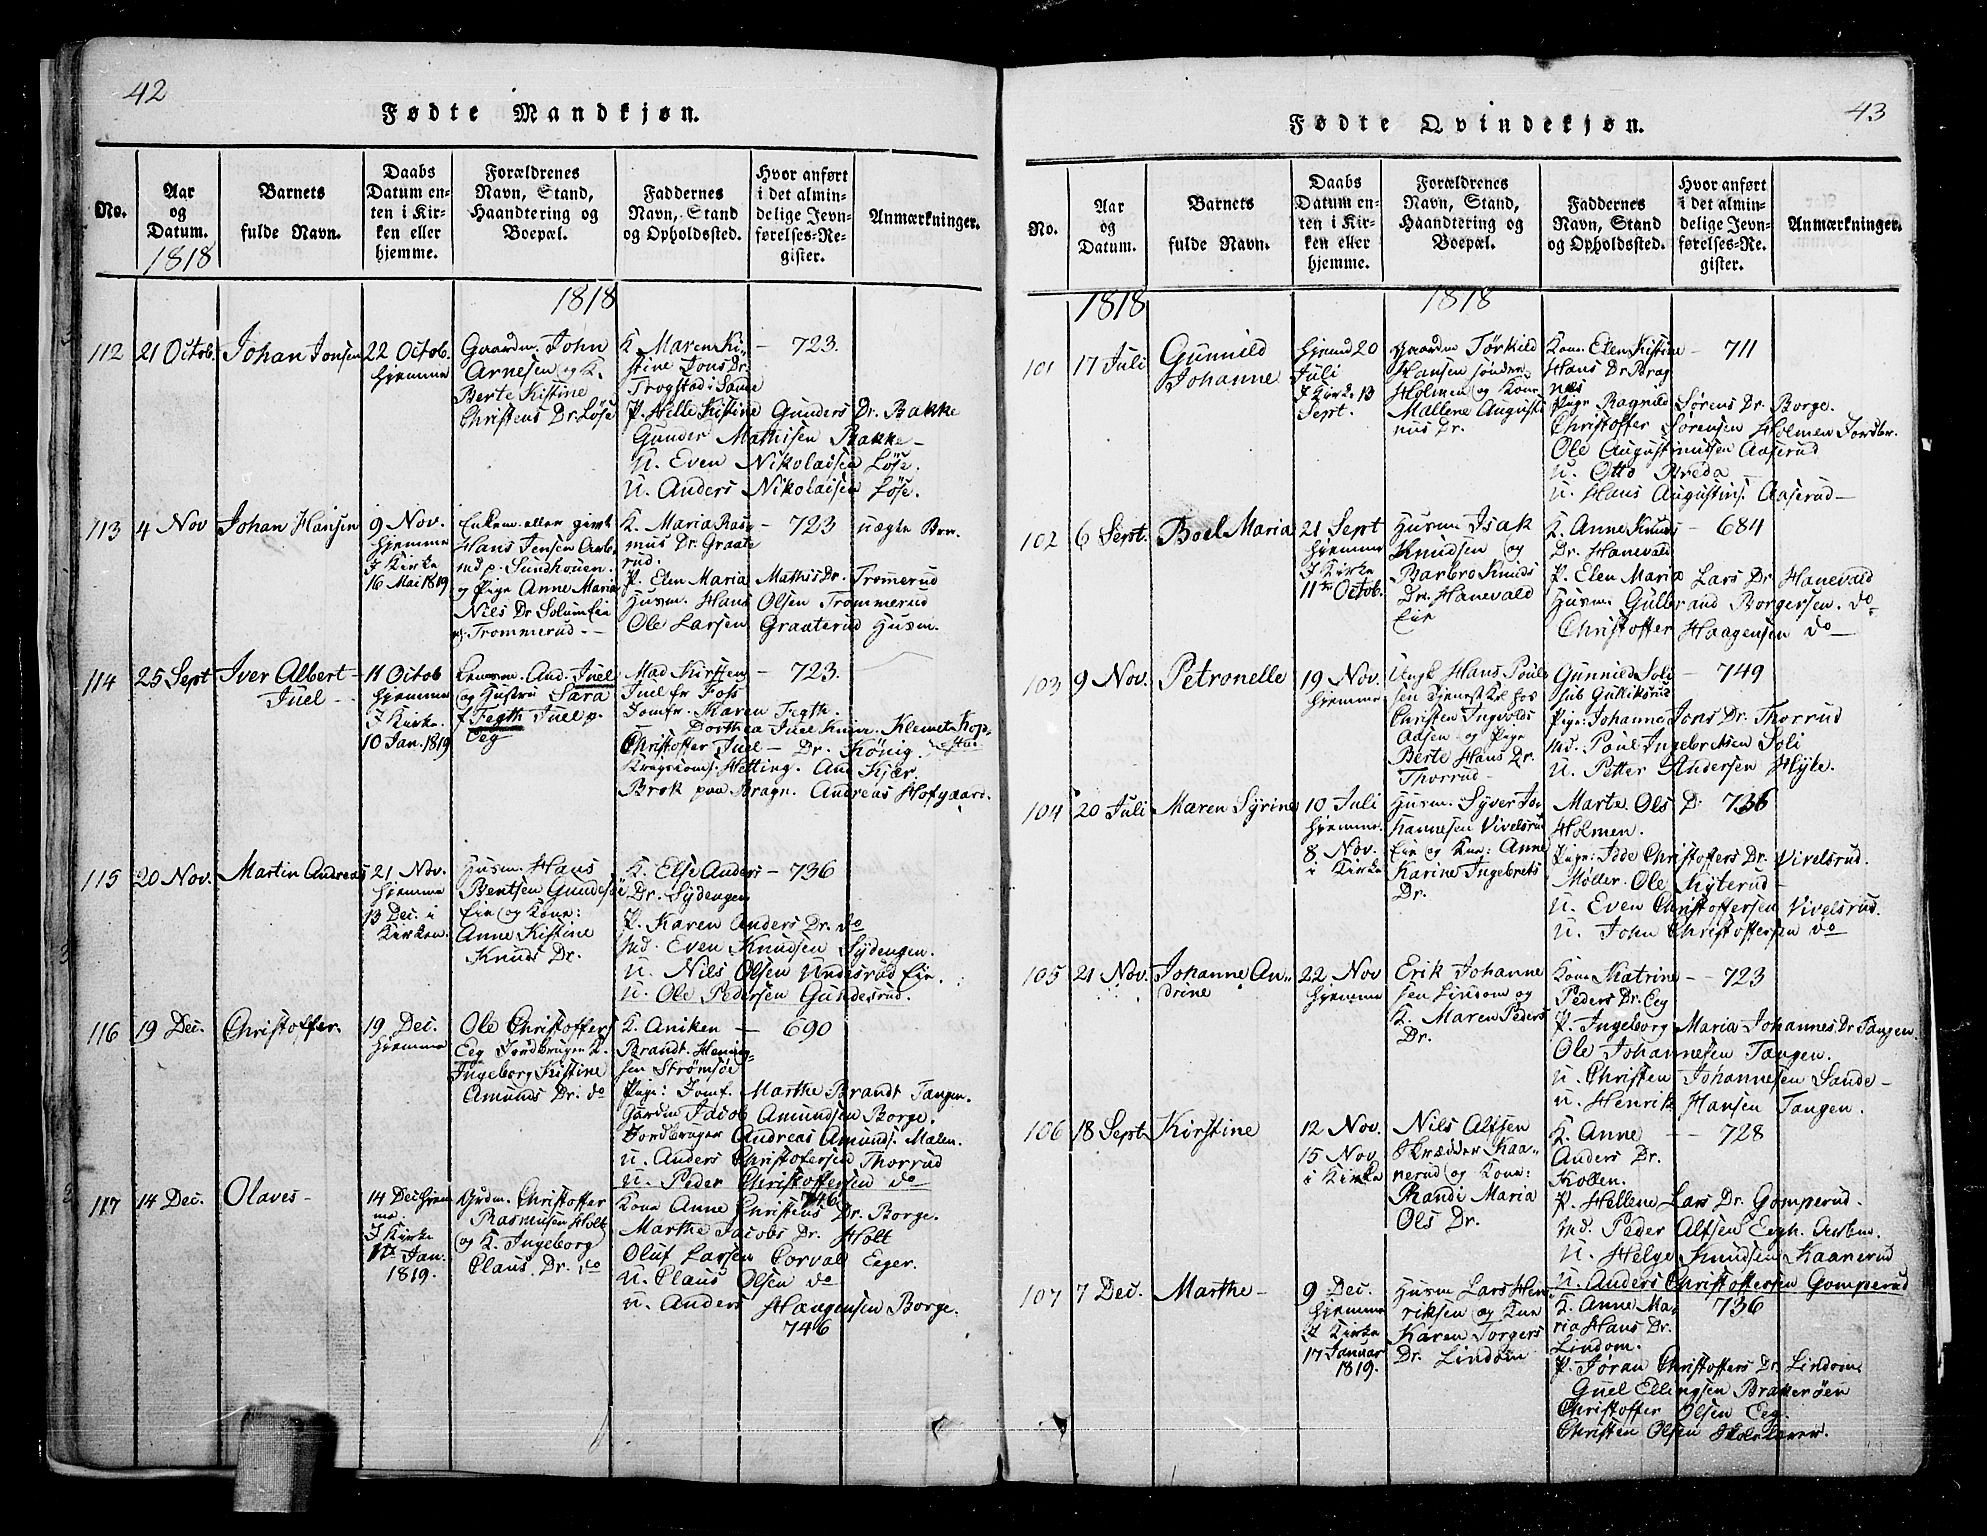 42
Fødte Mandkjøn.
No.
Aar
og
Datum.
1818
Barnets
fulde Navn.
Daabs
Datum en-
ten i Kir-
ken eller
hjemme.
Forældrenes
Navn, Stand,
Haandtering og
Boepæl.
Faddernes
Navn, Stand
og Opholdssted.
Hvor anført
i det almin-
delige Jevn-
førelses-Re-
gister.
Anmærkninger.
1818
112
21 Octob.
Johan Jonsen
22 Octob.
hjemme
Gaardm. John
Arnesen og K.
Berte Kistine
Christens Dr. Løse
K. Maren Ki-
stine Jons Dr.
Trogstad i Sande
P. Helle Kistine Gunders Dr. Bakke
Gunder Mathisen Bakke -
U. Even Nikolaisen Løse.
U. Anders Nikolaisen Løse.
723.
113
4 Nov
Johan Hansen
9 Nov.
hjemme
I Kirke
16 Mai 1819
Enkem. eller givt
Hans Jensen Arb.
md p. Sundhouen.
og Pige Anne Maria
Nils Dr Solum Eie
og Trommerud -
K. Maria Ras-
mus Dr. Graate
rud.
P. Elen Maria Mathis Dr. Tromerud
Husm. Hans Olsen Trommerud
Ole Larsen Graaterud Husm.
723
uægte
114
25 Sept
Iver Albert
Juel -
11 Octob
hjemme
I Kirke
10 Jan. 1819
And. Juel
og Hustru Sara
f. Fegth Juel p.
Eeg
Mad Kirstten
Juel fr Foss
Jomfr. Karen Fegth.
Dorthea Juel
Christoffer Juel - Dr. König.
Hetting. And Kjær.
Brok paa Bragn. Andreas Hofgaard.
723.
115
20 Nov.
Martin Andreas
21 Nov.
hjemme
13 Dec. i
Kirken.
Husm. Hans
Bentsen Gundesø
Eie og Kone:
Anne Kistine
Knuds Dr.
K. Else Anders
Dr. Sydengen
P. Karen Anders Dr. do
Md. Even Knudsen Sydengen.
U. Nils Olsen Undesrud Eie.
U. Ole Pedersen Gundesrud.
736
116
19 Dec.
Christoffer
19 Dec.
hjemme
Ole Christoffers
Eeg Jordbruger K.
Ingeborg Kistine
Amunds Dr. do
K. Aniken
Brandt. Hening-
sen Strømsøe
Pige: Jomf. Marthe Brandt Tangen.
Gardm Jacob Amundsen Borge.
Jordbruger Andreas Amunds. Malen.
U. Anders Christoffersen Thorrud
U. Peder Christoffersen do
690
117
14 Dec.
Olaves -
14 Dec hjem
me.
I Kirke
Jan.
1819.
Grdm. Christoffer
Rasmusen Holt
og K. Ingeborg
Claus Dr. do
Kone Anne Christens Dr. Borge.
Marthe Jacobs Dr. Holt
Oluf Larsen Corval Eeger.
U. Claus Olsen do
U. Anders Haagensen Borge.
746
746
43
Fødte Qvindekjøn.
No.
Aar
og
Datum.
Barnets
fulde Navn.
Daabs
Datum en-
ten i Kir-
ken eller
hjemme.
Forældrenes
Navn, Stand,
Haandtering og
Boepæl.
Faddernes
Navn, Stand
og Opholdssted.
Hvor anført
i det almin-
delige Jevn-
førelses-Re-
gister.
Anmærkninger.
1818
1818
101
17 Juli
Gunnild
Johanne
hjem 20
Juli
I Kirke 13
Sept.
Gaardm Torkild
Hansen søndre
Holmen og Kone
Mallene Augusti
nus Dr.
Kone Elen Kistine
Hans Dr Brag
nes
Pige Ragnild Sørens Dr. Borge.
Christoffer Sørensen Holmen Jordbr.
Ole Augustinussen Aaserud
U. Otto Breda
U. Hans Augustins. Aaserud -
711
102
6 Sept.
Boel Maria
21 Sept
hjemme
I Kirke
11te Octob.
Husm Isak
Knudsen og
Barbro Knuds
Dr. Hanevald
Eie
K. Anne Knuds
Dr. Hanevald
P. Elen Maria Lars Dr Hanevald
Husm. Gulbrand Borgersen. do
Christoffer Haagensen do -
684
103
9 Nov.
Petronelle
19 Nov.
hjemme
Ungk Hans Poul
sen Tjenest Kl hos
Christen Ingvolds
Aasen og Pige
Berte Hans Dr.
Thorrud -
Gunnild Soli
Gulliksrud
Pige: Johanne Jons Dr. Thorrud
Md. Poul Ingebretsen Soli
U. Petter Andersen Hyle.
749
104
20 Juli
Maren Syrine
10 Juli
hjemme.
8 Nov.
i Kirke
Husm. Syver Jo
hannesen Vivelsrud
Eie og Kone: Anne
Karine Ingebrets
Dr.
Marte Ols D.
Holmen.
Pige: Jøde Christoffers Dr. Vivelsrud.
Møller Ole Myterud -
U. Even Christoffersen Vivelsrud.
U. John Christoffersen do
736
105
21 Nov.
Johanne An-
drine
22 Nov
hjemme
Erik Johanne
sen Lindom og
K. Maren Peders
Dr.
Kone Katrine
Peders Dr. Eeg
P. Ingeborg Maria Johannes Dr Tangen.
Ole Johannesen Tangen.
U. Christen Johannesen Sande -
U. Henrik Hansen Tangen.
723
106
18 Sept.
Kirstine
12 Nov.
15 Nov
i Kirke
Nils Alfsen
Skrædder Kaa-
nerud og Kone:
Randi Maria
Ols Dr.
K. Anne
Anders Dr.
Kollen.
P. Hellene Lars Dr. Gomperud.
Md. Peder Alfsen
U. Helge Knudsen Kaanerud
U. Anders Christoffersen Gomperud
728
107
7 Dec.
Marthe -
9 Dec.
hjemme
I Kirke
17 Januar
1819.
Husm Lars Hen
riksen og Kone
Karen Torgers
Dr. Lindom
K. Anne Ma-
ria Hans Dr.
Lindom.
P. Joran Christoffers Dr. Lindom
Guel Ellingsen Brakerøen
Christoffer Olsen Eeg.
Christen Olsen Skolelærer.
736